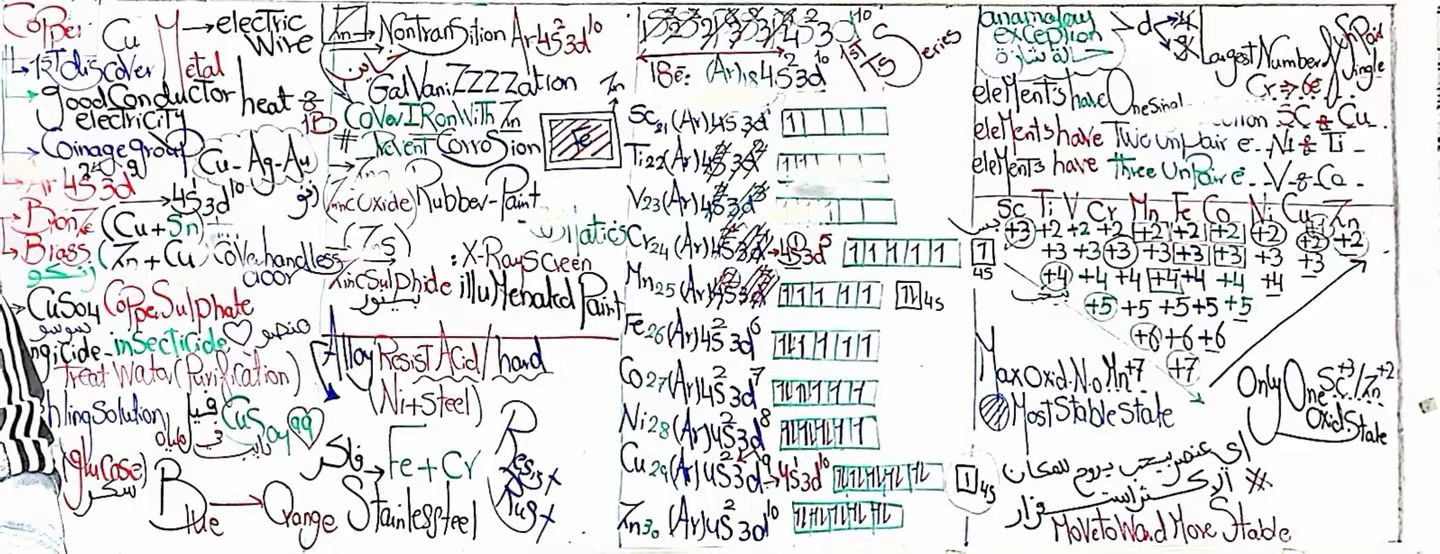 Copper
Cu
Metal → electric Wire
1ST discover
good Conductor heat & electricity
Coinage group 1B
Cu-Ag-Au
Ar 4S 3d
→ 4S 3d10
Bronze (Cu+Sn)
Brass (Zn+Cu) Cover handless door
CuSO4 Copper Sulphate
insecticide
Treat Water (Purification)
hling Solution
CuSO4 99
(glucose)
سكر
Blue → Orange
Zn → Non Transition Ar 4S2 3d10
GalVaniZZZZation
Cover IRon With Zn
# Prevent Corrosion
Zn
Fe
(Zinc Oxide) Rubber-Paint
(ZnS)
Zinc Sulphide : X-Ray Screen
illuMenated Paint
Alloy Resist Acid/hard
(Ni+Steel)
فاكر → Fe+Cr
Stainlessteel
Resist Rust
1ST TS Series
18e: (Ar)18 4S2 3d10
Sc21 (Ar) 4S2 3d1
Ti22 (Ar) 4S2 3d2
V23 (Ar) 4S2 3d3
Cr24 (Ar) → 4S1 3d5
4S
Mn25 (Ar)
4S
Fe26 (Ar) 4S2 3d6
Co27 (Ar) 4S2 3d7
Ni28 (Ar) 4S2 3d8
Cu29 (Ar) 4S2 3d9 → 4S1 3d10
4S
Zn30 (Ar) 4S2 3d10
anamolous exception
حالة شاذة
→ d 4 9
Largest Number of UnPair Single
Cr → 6e
eleMents have One
Sc & Cu
eleMents have Two unpair e- Ni & Ti -
eleMents have three UnPair e- V & Co -
Sc Ti V Cr Mn Fe Co Ni Cu Zn
+3 +2 +2 +2 +2 +2 +2 +2 +1 +2
+2
+3 +3 +3 +3 +3 +3 +3 +3
+4 +4 +4 +4 +4 +4 +4
+5 +5 +5 +5 +5
+6 +6 +6
+7
Max Oxid. No Mn+7
Most Stable State
Only One Sc+3/Zn+2
Oxid State
اي عنصر بيحب يروح لمكان
اكثر استقرار
Move toWard More Stable